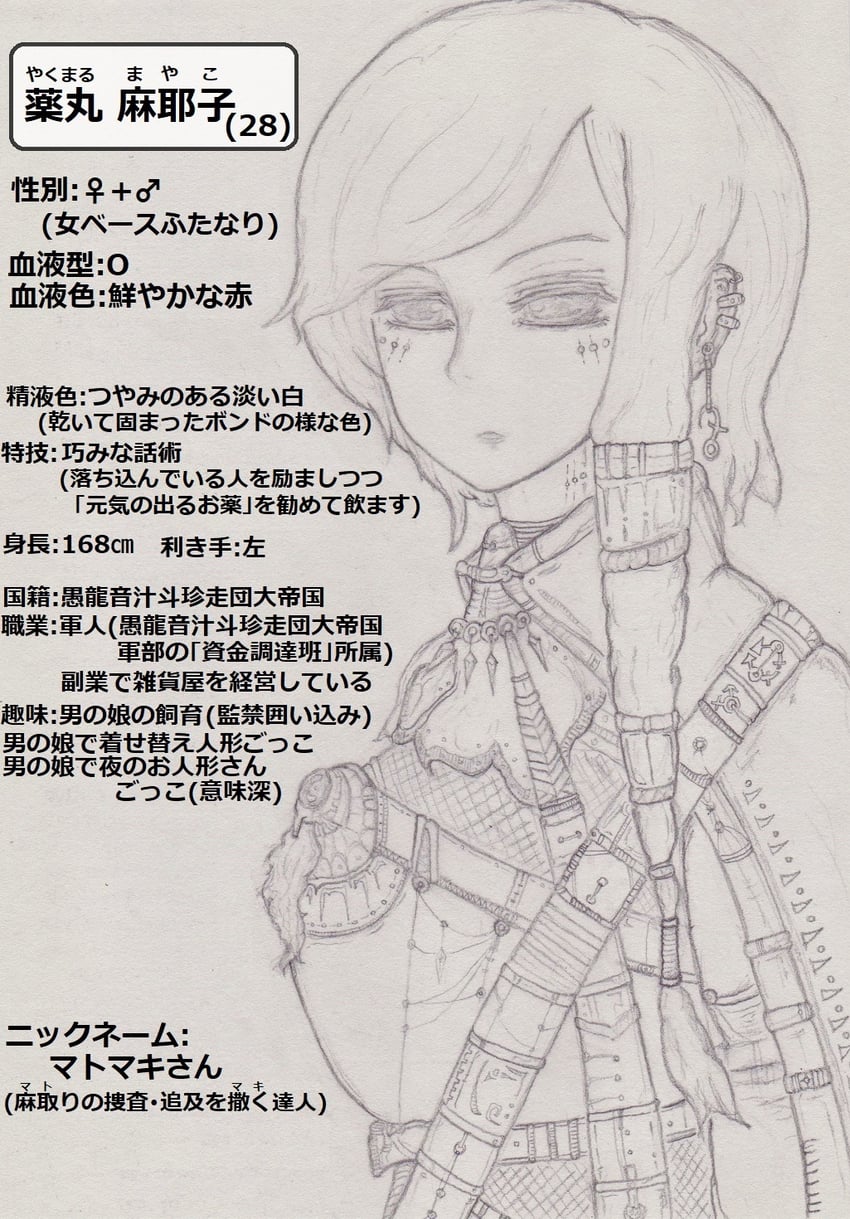 やくまる まやこ
薬丸 麻耶子(28)
性別:♀+♂
(女ベースふたなり)
血液型:O
血液色:鮮やかな赤
精液色:つやみのある淡い白
(乾いて固まったボンドの様な色)
特技:巧みな話術
(落ち込んでいる人を励ましつつ
「元気の出るお薬」を勧めて飲ます)
身長:168㎝ 利き手:左
国籍:愚龍音汁斗珍走団大帝国
職業:軍人(愚龍音汁斗珍走団大帝国
軍部の「資金調達班」所属)
副業で雑貨屋を経営している
趣味:男の娘の飼育(監禁囲い込み)
男の娘で着せ替え人形ごっこ
男の娘で夜のお人形さん
ごっこ(意味深)
ニックネーム:
マトマキさん
マト マキ
(麻取りの捜査・追及を撒く達人)